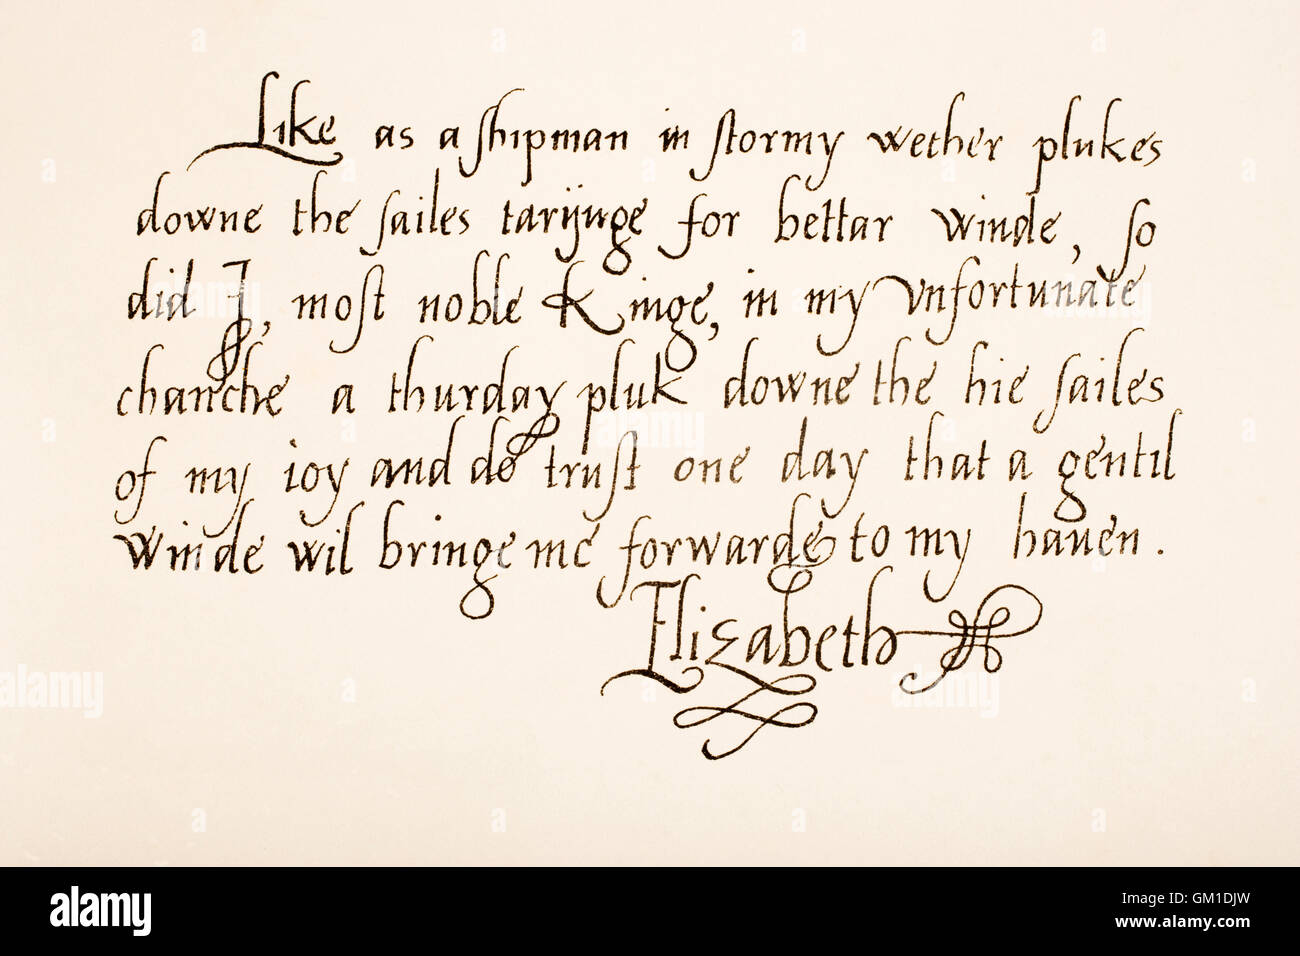 Like as a shipman in stormy wether plukes
downe the sailes tarijnge for bettar winde, so
did I, most noble Kinge, in my vnfortunate
chanche a thurday pluk downe the hie sailes
of my ioy and do trust one day that a gentil
winde wil bringe me forwarde to my hauen.
Elizabeth
alamy
GM1DJW
www.alamy.com